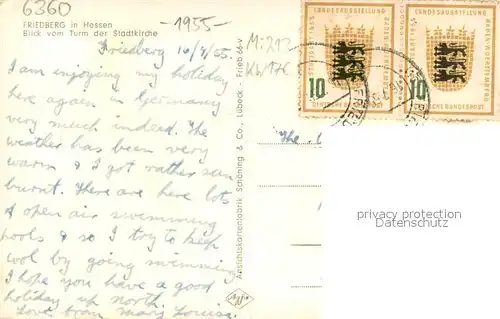 6360
-1955-
FRIEDBERG in Hessen
Blick vom Turm der Stadtkirche
Mi 213
Friedberg 16/7/55.
I am enjoying my holiday
here again in Germany
very much indeed. The
weather has been very
warm & I got rather sun
burnt. There are here lots
of open air swimming
pools & so I try to keep
cool by going swimming
I hope you have a good
holiday up north.
Love from Mary Louise.
Ansichtskartenfabrik Schöning & Co., Lübeck · Frieb 66-v
The
LANDESAUSSTELLUNG
BADEN-WÜRTTEMBERG
10
DEUTSCHE BUNDESPOST
LANDESAUSSTELLUNG
BADEN-WÜRTTEMBERG
10
DEUTSCHE BUNDESPOST
privacy protection
Datenschutz